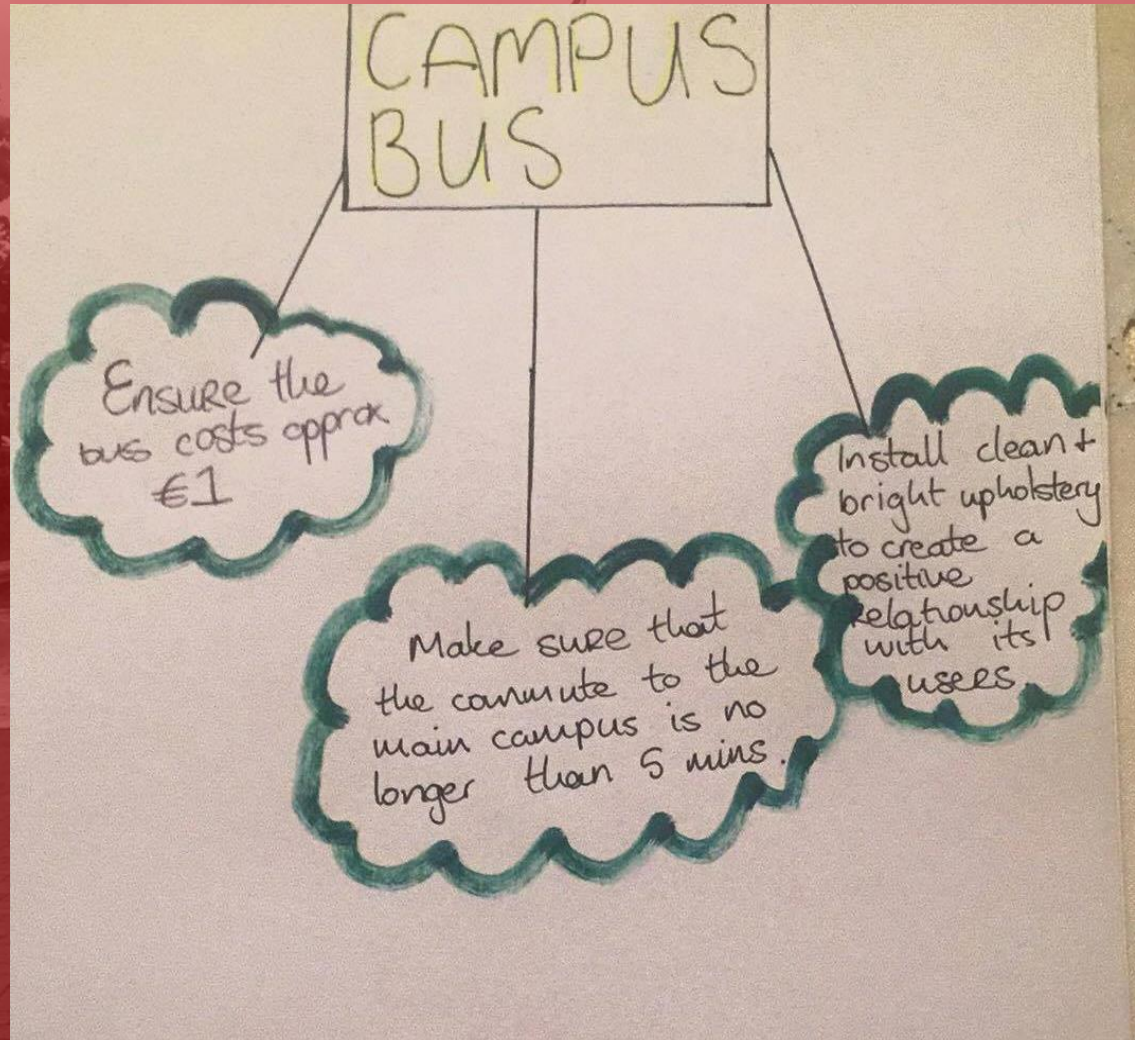 CAMPUS
BUS
Ensure the
bus costs approx
€1
Make sure that
the commute to the
main campus is no
longer than 5 mins.
Install clean +
bright upholstery
to create a
positive
relationship
with its
users.